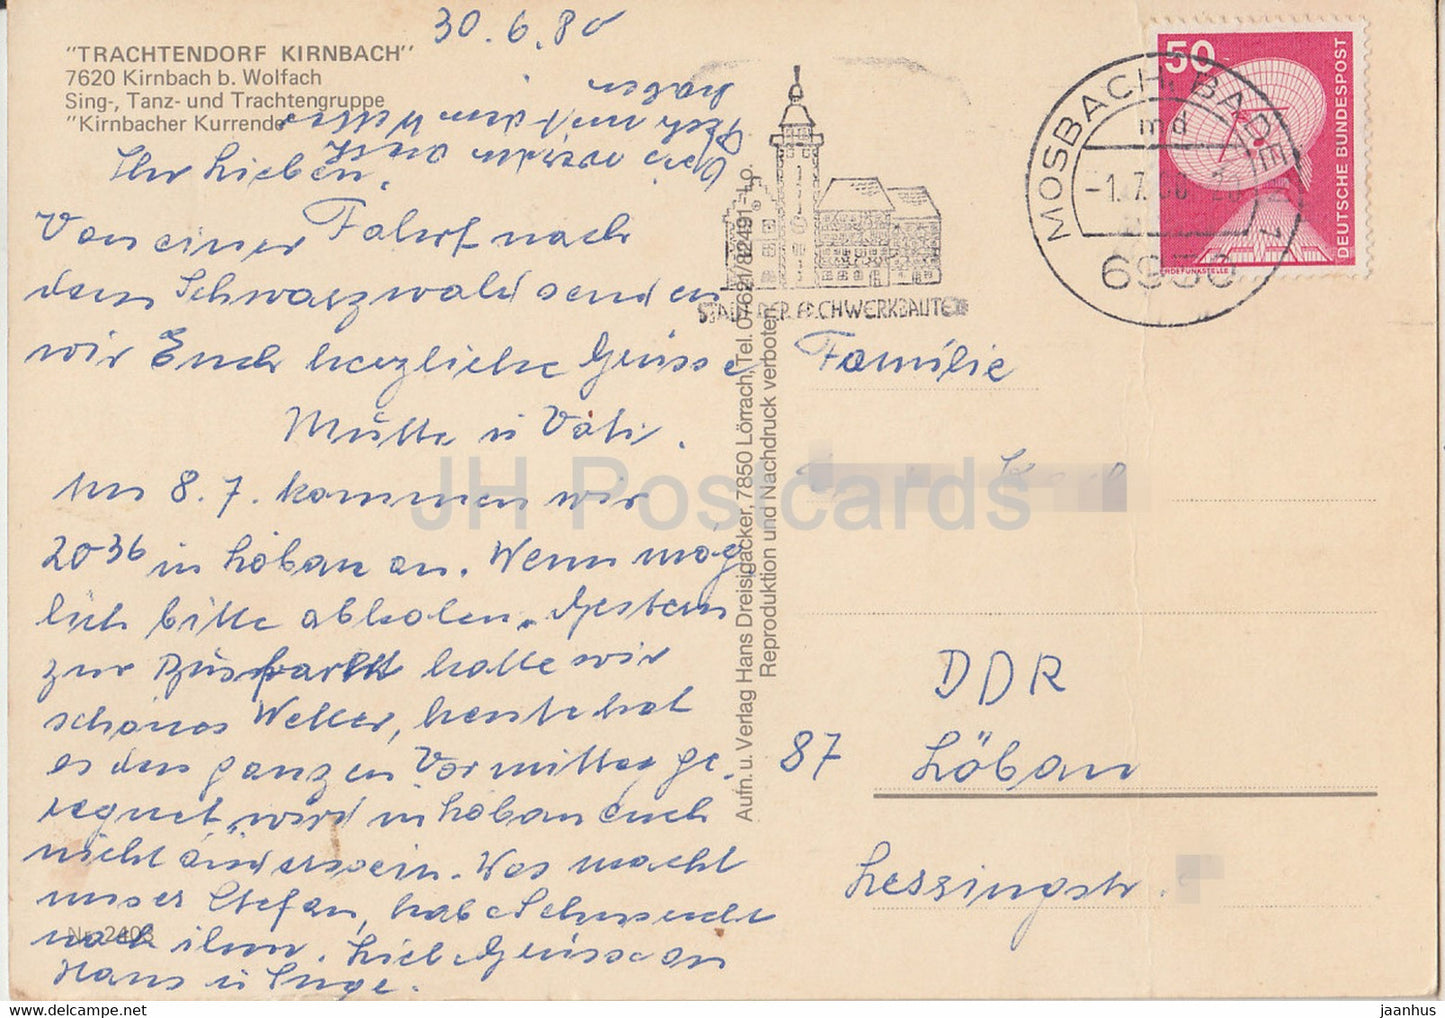 30.6.80
"TRACHTENDORF KIRNBACH"
7620 Kirnbach b. Wolfach
Sing-, Tanz- und Trachtengruppe
"Kirnbacher Kurrende"
Ihr Lieben.
Von einer Fahrt nach
dem Schwarzwald senden
wir Euch herzliche Grüsse
Mutti u Vati.
Am 8.7. kommen wir
2036 in Löbau an. Wenn mög
lich bitte abholen. Gestern
zur hatte wir
schönes Wetter, heute hat
es den ganzen Vormittag ge-
regnet, wird in Löbau auch
nicht anders sein. Was macht
unser Stefan, habe Sehnsucht
nach ihm. Liebe Grüsse an
Hans u Inge.
Nr. 2403
Aufn. u. Verlag Hans Dreisigacker, 7850 Lörrach, Tel. 07621/82491-Lo.
Reproduktion und Nachdruck verboten
STADT DER FACHWERKBAUTEN
MOSBACH, BADEN 1
md
-1.7.80
6950
50
DEUTSCHE BUNDESPOST
ERDEFUNKSTELLE
Familie
DDR
87 Löbau
Lessingstr.
JH Postcards
jaanhus
www.hippostcard.com